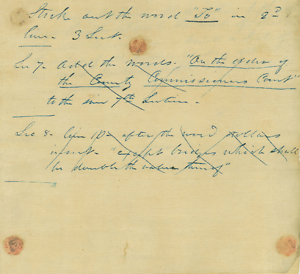 Strik out the word "To" in 2d
line - 3 Sect.
Sec 7. Added the words. "On the order of
the County Commissioners Court"
to the line 7th Section.
Sec 8. after the word dollars
insert - "except bridges which shall
be double the value thereof"